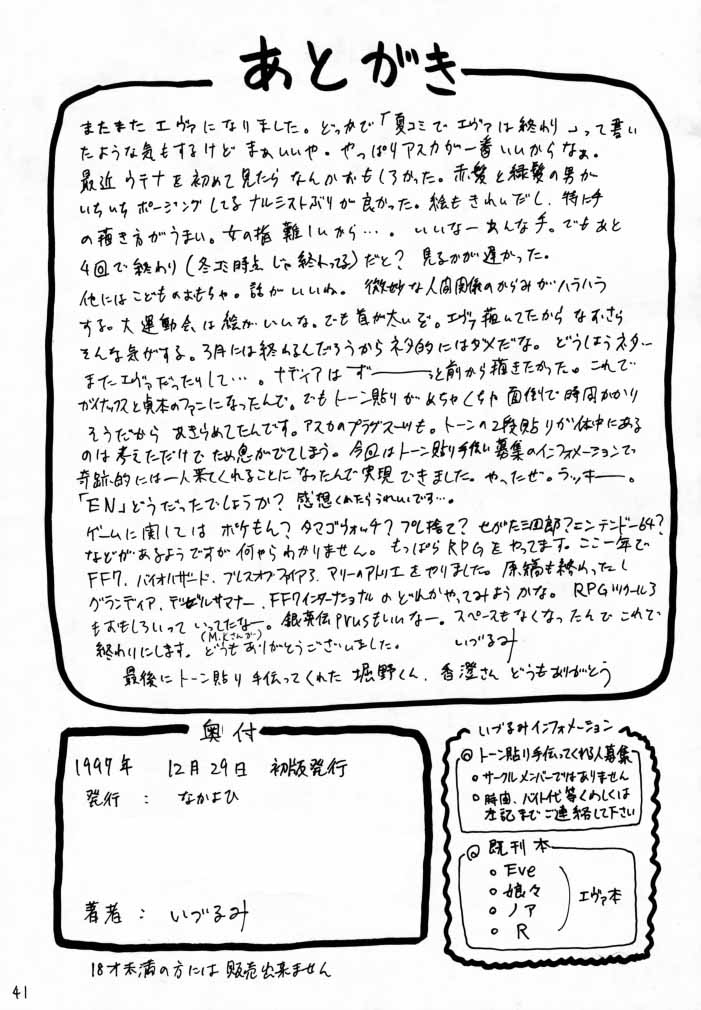 あとがき
またまたエヴァになりました。どっかで「夏コミでエヴァは終わり」って書い
たような気もするけどまぁいいや。やっぱりアスカが一番いいからなぁ。
最近ウテナを初めて見たらなんかおもしろかった。赤髪と緑髪の男が
いちいちポージングしてるナルシストぶりが良かった。絵もきれいだし、特に手
の描き方がうまい。女の指難しいから…。いいなーあんな手。でもあと
4回で終わり(冬コミ時点じゃ終わってる)だと? 見るのが遅かった。
他にはこどものおもちゃ。話がいいね。微妙な人間関係のからみがハラハラ
する。大運動会は絵がいいな。でも首が太いぞ。エヴァ描いてたからなおさら
そんな気がする。3月には終わるんだろうからネタ的にはダメだな。どうしようネタ…
またエヴァだったりして…。ナディアはず───っと前から描きたかった。これで
ガイナックスと貞本のファンになったんで。でもトーン貼りがめちゃくちゃ面倒で時間かかり
そうだからあきらめてたんです。アスカのプラグスーツも。トーンの2段貼りが体中にある
のは考えただけでため息がでてしまう。今回はトーン貼り手伝い募集のインフォメーションで
奇跡的には一人来てくれることになったんで実現できました。やったぜ。ラッキー。
「EN」どうだったでしょうか? 感想くれたらうれしいです…。
ゲームに関してはポケもん?タマゴウォッチ?プレ捨て?せがた三四郎?ニンテンドー64?
などがあるようですが何やらわかりません。もっぱらRPGをやってます。ここ一年で
FF7、バイオハザード、ブレスオブファイア3、マリーのアトリエをやりました。原稿も終わったし
グランディア、デビルサマナー、FF7インターナショナルのどれかやってみようかな。RPGツクール3
もおもしろいっていってたなー。銀英伝prusもいいなー。スペースもなくなったんでこれで
(M.Kさんが)
終わりにします。どうもありがとうございました。 いづるみ
最後にトーン貼り手伝ってくれた堀野くん、香澄さんどうもありがとう
奥付
1997年 12月29日 初版発行
発行 : なかよひ
著者 : いづるみ
18才未満の方には販売出来ません
いづるみインフォメーション
◎トーン貼り手伝ってくれる人募集
○サークルメンバーではありません
○時間、バイト代等くわしくは
左記までご連絡して下さい
◎既刊本
○Eve
○娘々
○ノア
○R
エヴァ本
41